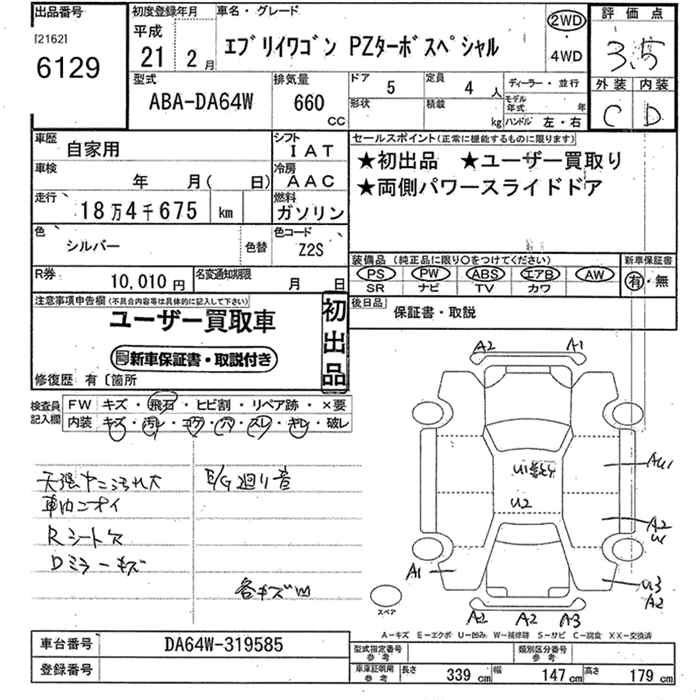 出品番号 初度登録年月 車名・グレード 評価点
[2162] 平成
6129 21年 2月 エブリイワゴン PZターボスペシャル 2WD 4WD 3.5
型式 排気量 ドア 定員 ディーラー・並行 外装 内装
ABA-DA64W 660 CC 5 4人 モデル年式 年 C D
形状 積載 kg ハンドル 左・右
車歴 自家用 シフト IAT セールスポイント(正常に機能するものに限ります)
車検 年 月( 日) 冷房 AAC ★初出品 ★ユーザー買取り
走行 18万4千675 km 燃料 ガソリン ★両側パワースライドドア
色 シルバー 色替 色コード Z2S
装備品 (純正品に限り○をつけてください) 新車保証書
R券 10,010円 名変通知期限 月 日 PS PW ABS エアB AW 有・無
SR ナビ TV カワ
注意事項申告欄(不具合内容等は具体的に記入して下さい) 初出品 後日品 保証書・取説
ユーザー買取車
新車保証書・取説付き
修復歴 有〔箇所
検査員記入欄 FW キズ・飛石・ヒビ割・リペア跡・×要
内装 キズ・汚レ・コゲ・穴・スレ・キレ・破レ
E/G廻り音
車内ニオイ
Rシート穴
Dミラーキズ
各キズm
A2 A1
U1
U2
A2
A1 U3
A2
スペア
A2 A2 A3
A-キズ E-エクボ U-凹み W-補修跡 S-サビ C-腐食 XX-交換済
車台番号 DA64W-319585 型式指定番号 参考 類別区分番号 参考
登録番号 車庫証明用 参考 長さ 339cm 幅 147cm 高さ 179cm